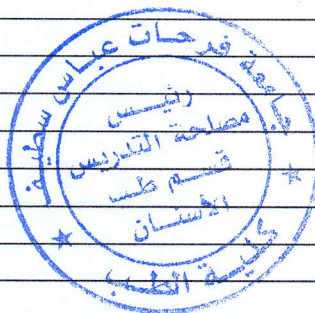 جامعة فرحات عباس سطيف
رئيس
مصلحة التدريس
قسم طب
الأسنان
كلية الطب